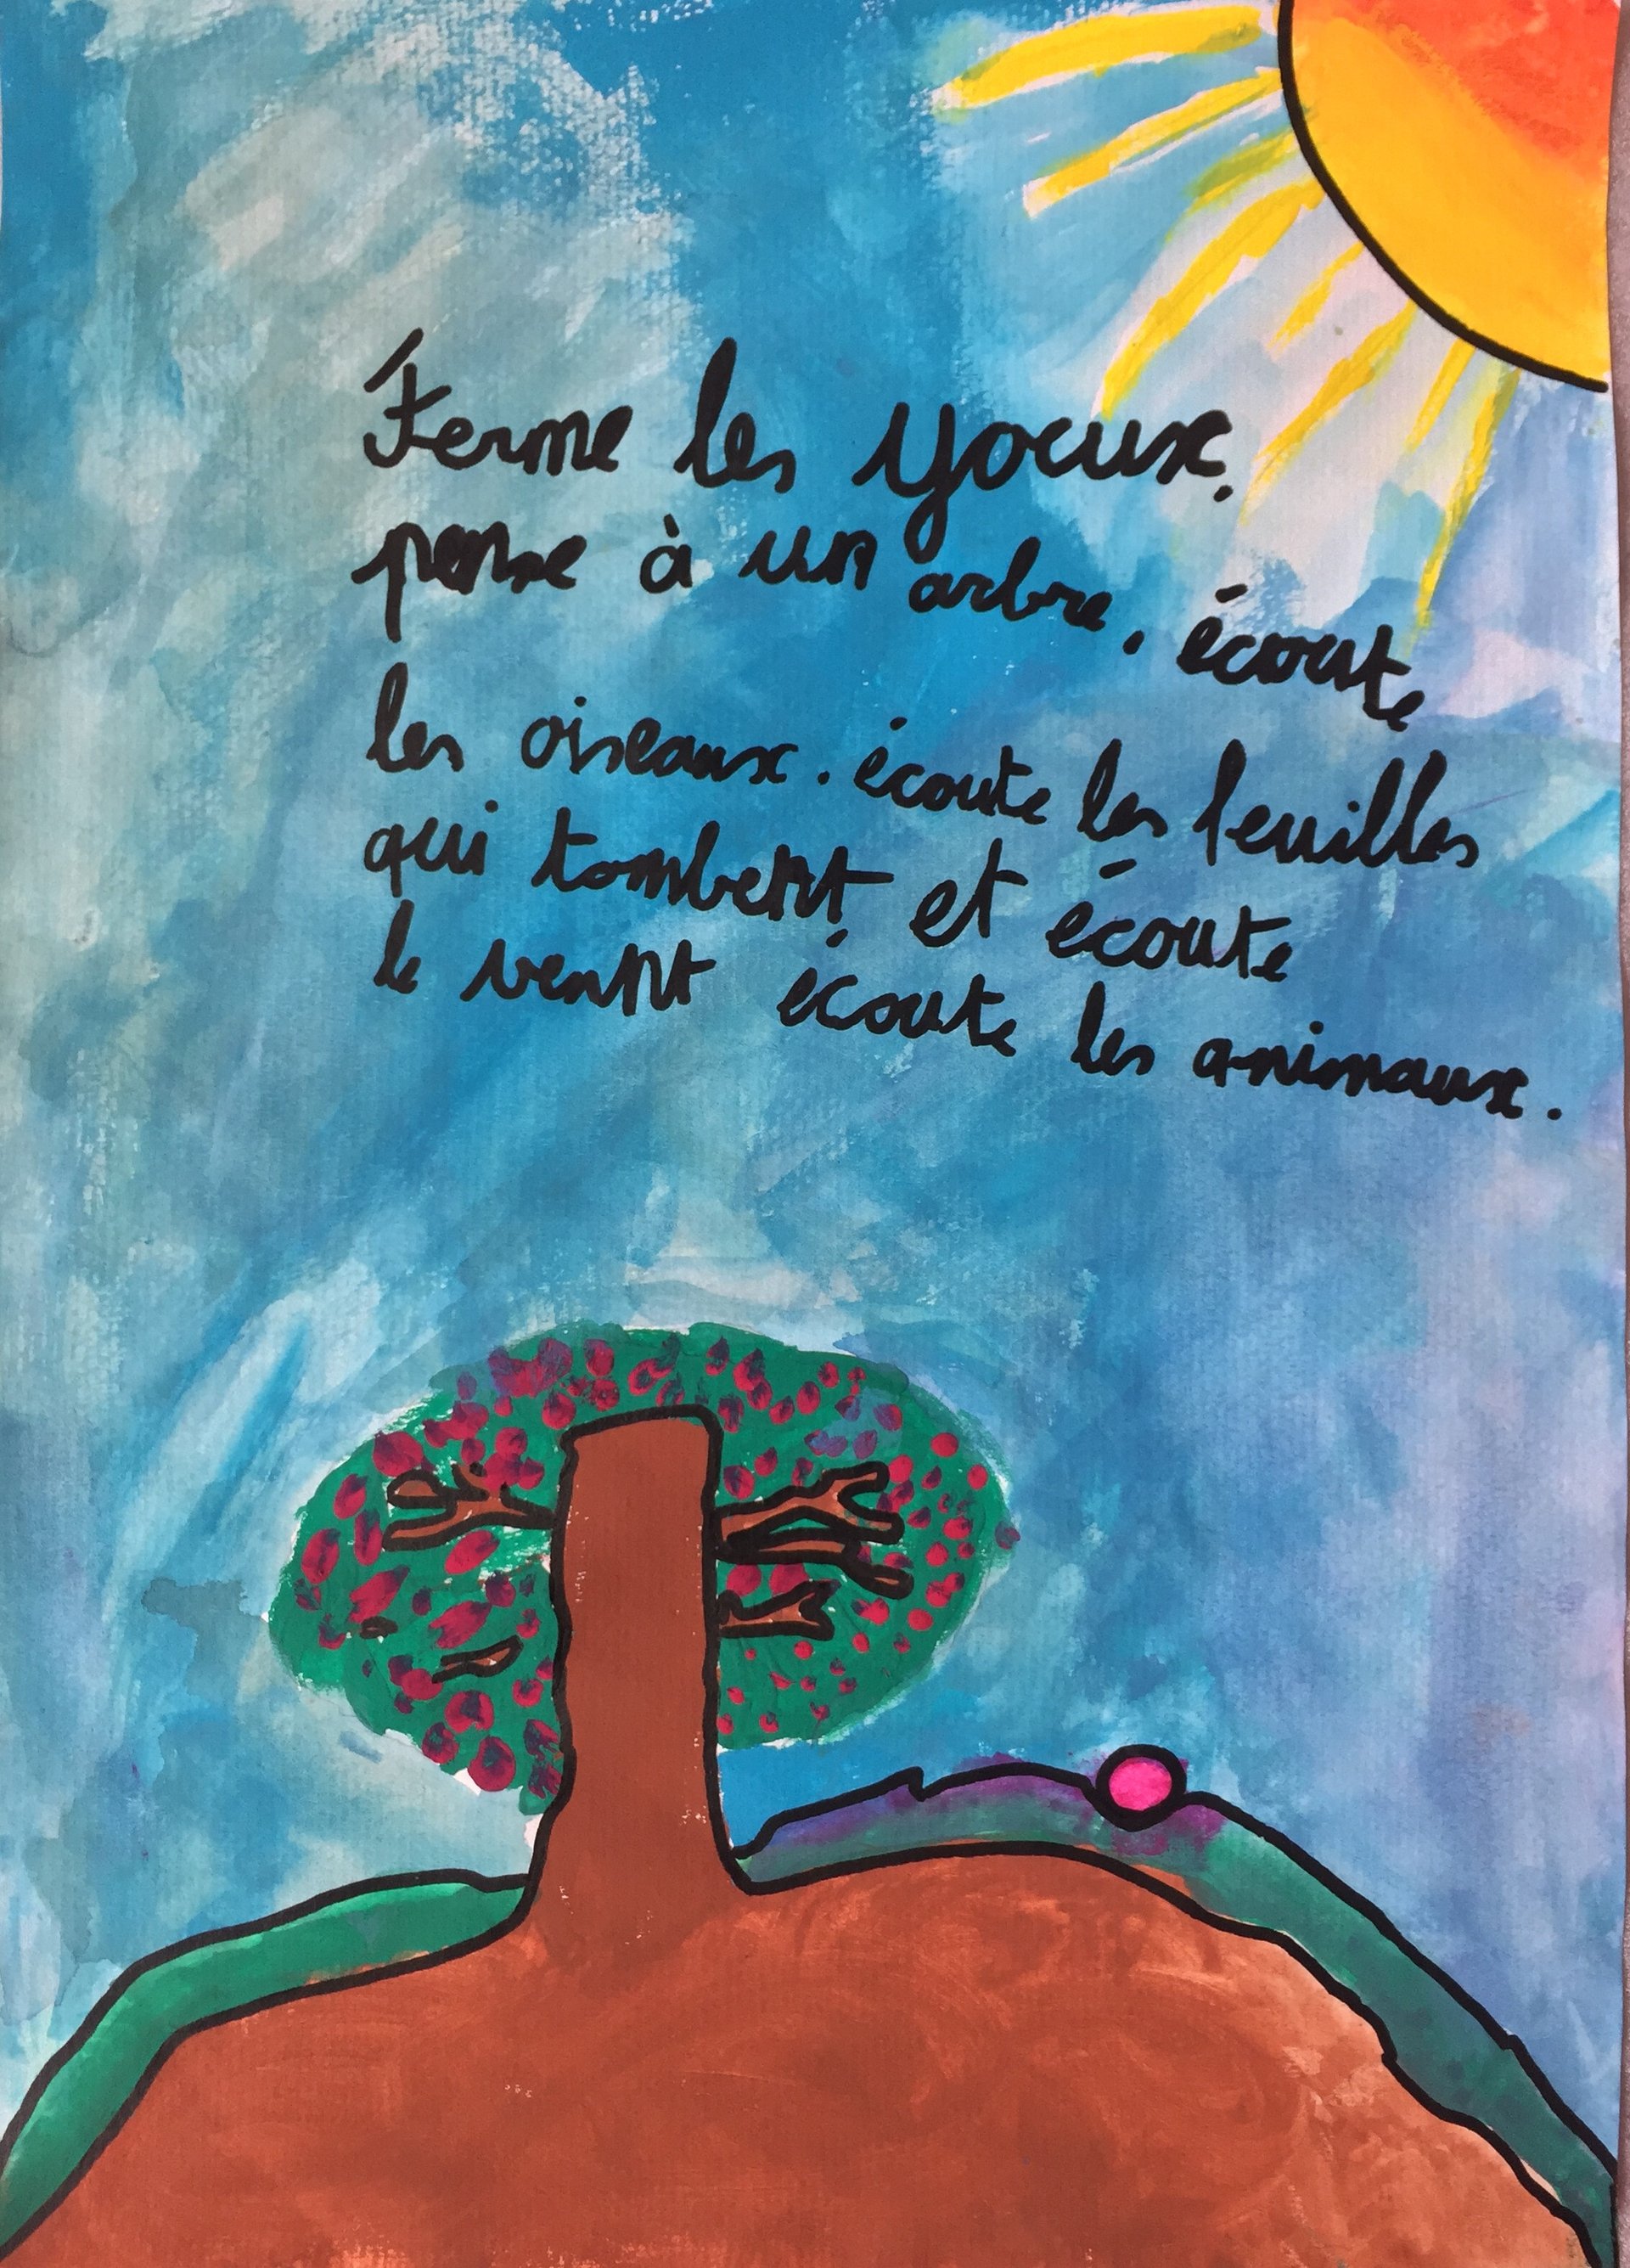 Ferme les yoeux.
pense à un arbre. écoute
les oiseaux. écoute les feuilles
qui tombent et écoute
le vent écoute les animaux.